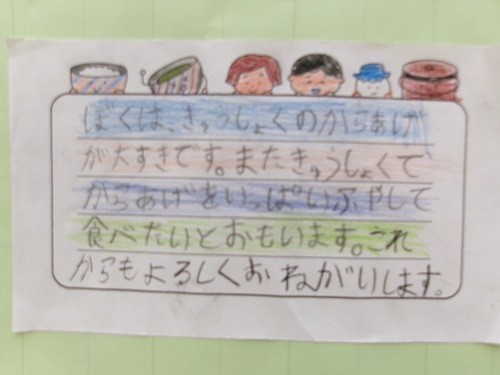 ぼくは、きゅうしょくのからあげ
が大すきです。またきゅうしょくで
からあげをいっぱいふやして
食べたいとおもいます。これ
からもよろしくおねがいします。